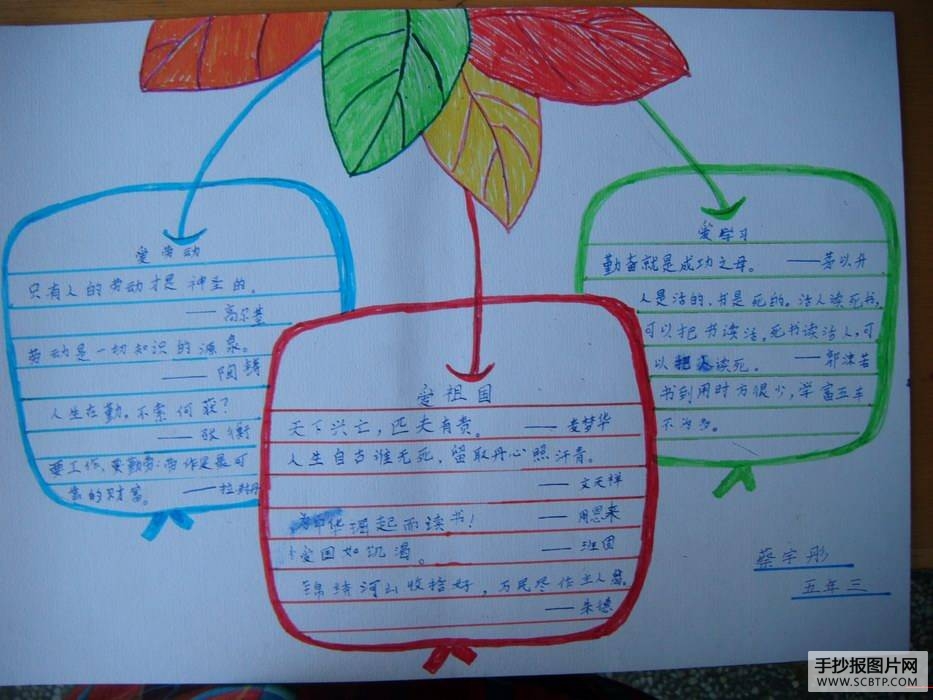 爱劳动
只有人的劳动才是神圣的。
——高尔基
劳动是一切知识的源泉。
——陶铸
人生在勤,不索何获?
——张衡
要工作,要勤劳:劳作是最可
靠的财富。——拉封丹
爱祖国
天下兴亡,匹夫有责。——麦孟华
人生自古谁无死,留取丹心照汗青。
——文天祥
为中华崛起而读书!——周恩来
爱国如饥渴。——班固
锦绣河山收拾好,万民尽作主人翁。
——朱德
爱学习
勤奋就是成功之母。——茅以升
人是活的,书是死的。活人读死书,
可以把书读活。死书读活人,可
以把人读死。——郭沫若
书到用时方恨少,学富五车
不为多。
蔡宇彤
五年三
手抄报图片网
WWW.SCBTP.COM